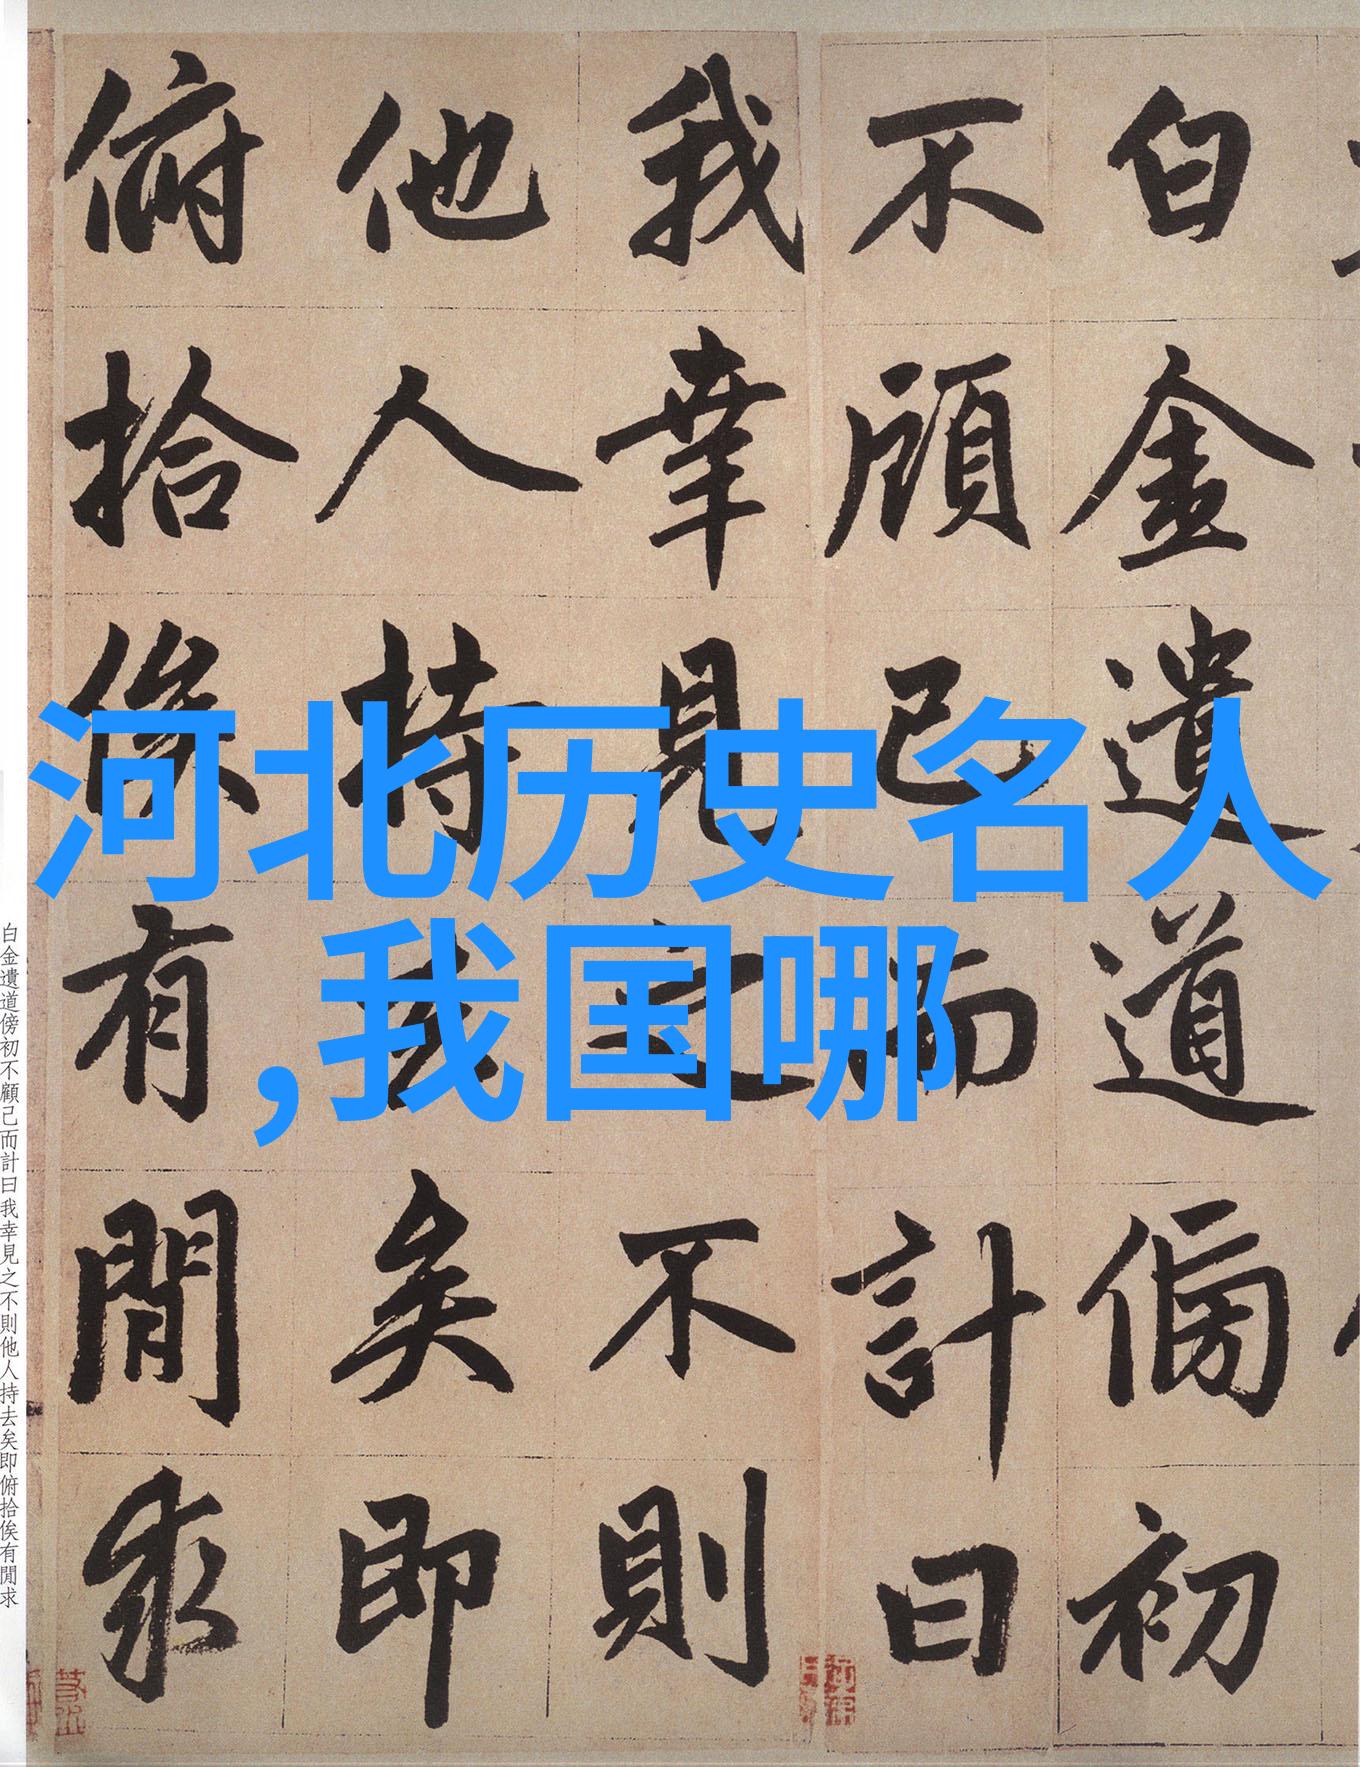 河北历史名人
,我国哪
白金遺道傍初
不顧己而計曰
我幸見之不則
他人持去矣即
俯拾俟有閒求
白金遺道傍初不顧己而計曰我幸見之不則他人持去矣即俯拾俟有閒求